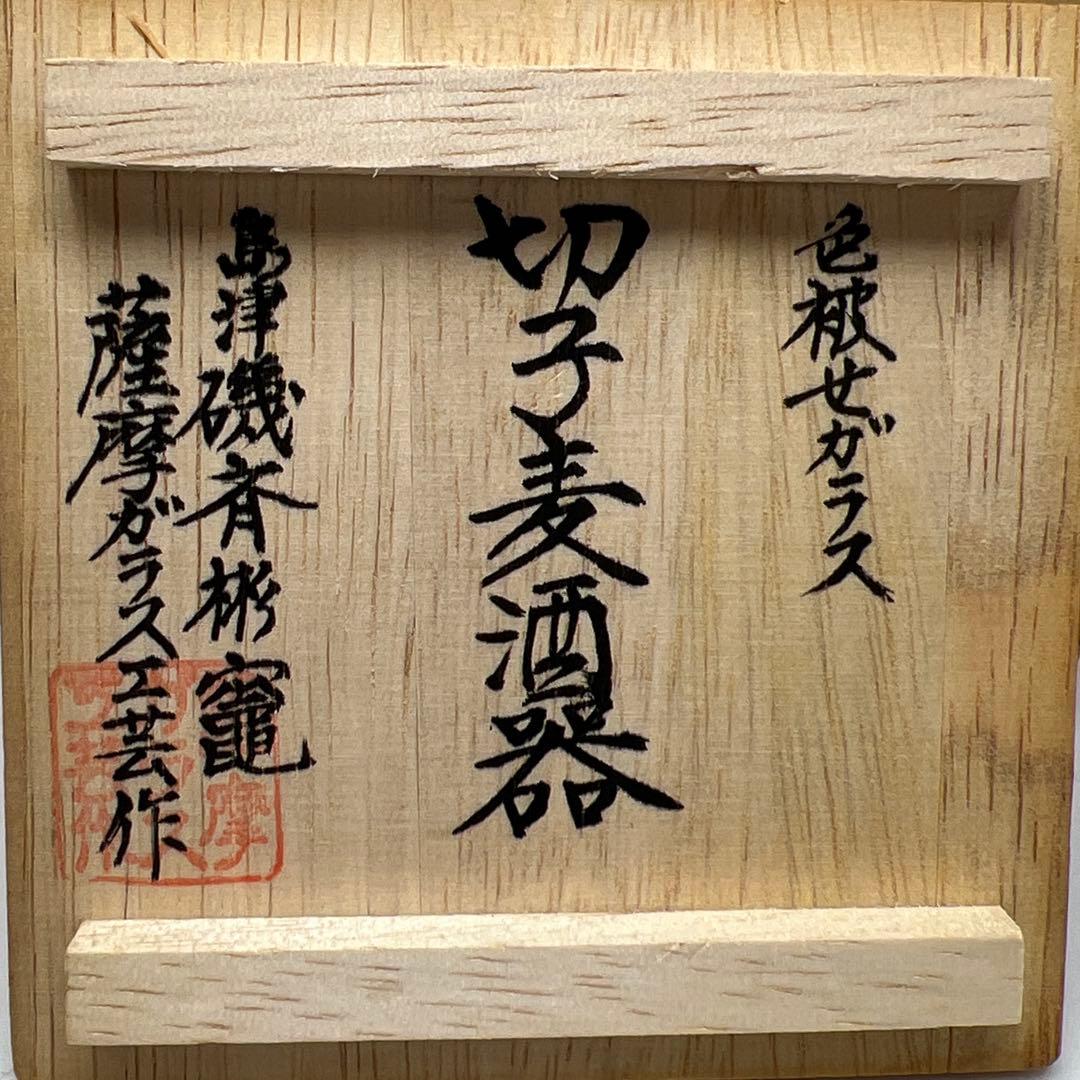 色被せガラス
切子麦酒器
島津磯斉彬竈
薩摩ガラス工芸作